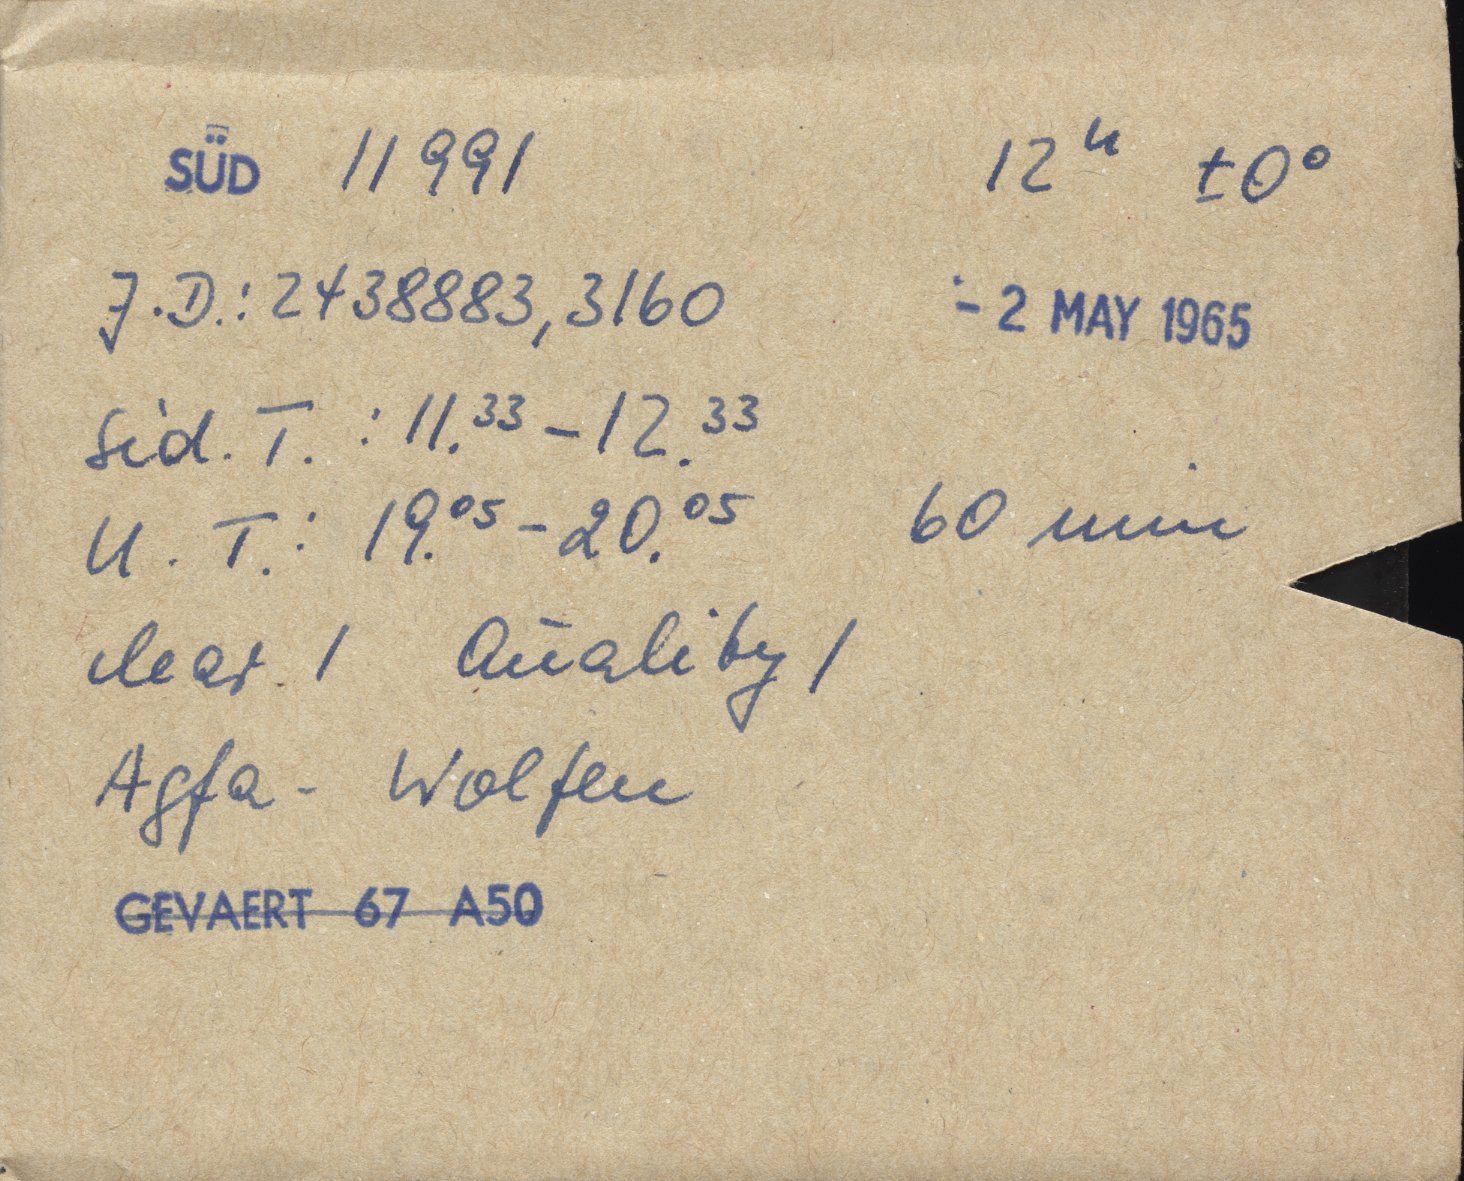 SÜD 11991 12ʰ ±0°
J.D.: 2438883,3160 - 2 MAY 1965
Sid. T. : 11.³³ - 12.³³
U. T. : 19.⁰⁵ - 20.⁰⁵ 60 min
clear 1 Quality 1
Agfa - Wolfen
GEVAERT 67 A50